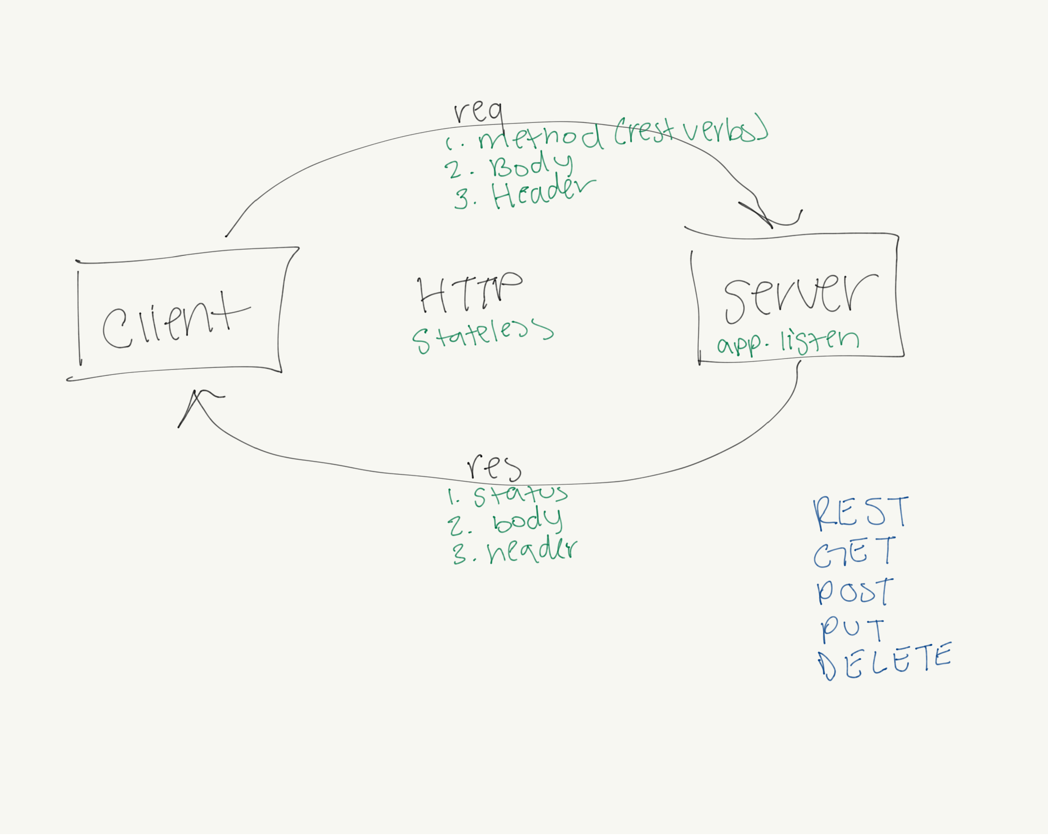 req
1. method (rest verbs)
2. Body
3. Header
client
HTTP
stateless
server
app.listen
res
1. status
2. body
3. header
REST
GET
POST
PUT
DELETE